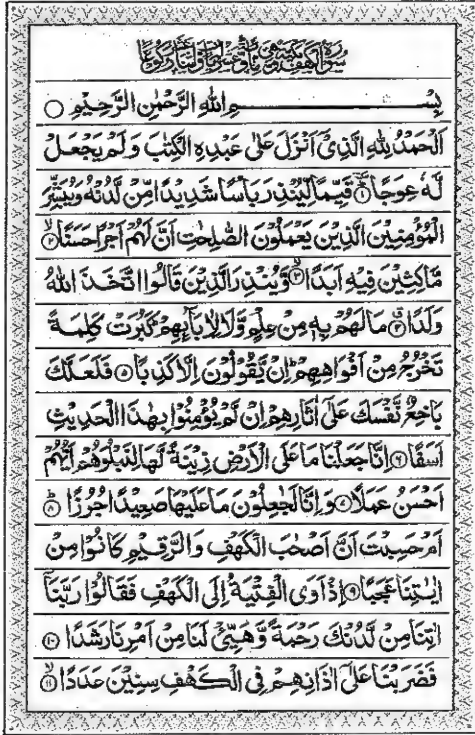 سُوْرَةُ الْكَهْفِ
بِسْمِ اللهِ الرَّحْمٰنِ الرَّحِيْمِ ○
اَلْحَمْدُ لِلّٰهِ الَّذِيْٓ اَنْزَلَ عَلٰى عَبْدِهِ الْكِتٰبَ وَلَمْ يَجْعَلْ
لَّهٗ عِوَجًا ﴿۱﴾ قَيِّمًا لِّيُنْذِرَ بَاْسًا شَدِيْدًا مِّنْ لَّدُنْهُ وَيُبَشِّرَ
الْمُؤْمِنِيْنَ الَّذِيْنَ يَعْمَلُوْنَ الصّٰلِحٰتِ اَنَّ لَهُمْ اَجْرًا حَسَنًا ﴿۲﴾
مَّاكِثِيْنَ فِيْهِ اَبَدًا ﴿۳﴾ وَّيُنْذِرَ الَّذِيْنَ قَالُوا اتَّخَذَ اللهُ
وَلَدًا ﴿۴﴾ مَا لَهُمْ بِهٖ مِنْ عِلْمٍ وَّلَا لِاٰبَآئِهِمْ كَبُرَتْ كَلِمَةً
تَخْرُجُ مِنْ اَفْوَاهِهِمْ اِنْ يَّقُوْلُوْنَ اِلَّا كَذِبًا ﴿۵﴾ فَلَعَلَّكَ
بَاخِعٌ نَّفْسَكَ عَلٰٓى اٰثَارِهِمْ اِنْ لَّمْ يُؤْمِنُوْا بِهٰذَا الْحَدِيْثِ
اَسَفًا ﴿۶﴾ اِنَّا جَعَلْنَا مَا عَلَى الْاَرْضِ زِيْنَةً لَّهَا لِنَبْلُوَهُمْ اَيُّهُمْ
اَحْسَنُ عَمَلًا ﴿۷﴾ وَاِنَّا لَجٰعِلُوْنَ مَا عَلَيْهَا صَعِيْدًا جُرُزًا ﴿۸﴾
اَمْ حَسِبْتَ اَنَّ اَصْحٰبَ الْكَهْفِ وَالرَّقِيْمِ كَانُوْا مِنْ
اٰيٰتِنَا عَجَبًا ﴿۹﴾ اِذْ اَوَى الْفِتْيَةُ اِلَى الْكَهْفِ فَقَالُوْا رَبَّنَآ
اٰتِنَا مِنْ لَّدُنْكَ رَحْمَةً وَّهَيِّئْ لَنَا مِنْ اَمْرِنَا رَشَدًا ﴿۱۰﴾
فَضَرَبْنَا عَلٰٓى اٰذَانِهِمْ فِي الْكَهْفِ سِنِيْنَ عَدَدًا ﴿۱۱﴾